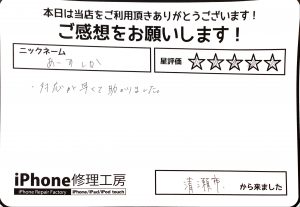 本日は当店をご利用頂きありがとうございます!
ご感想をお願いします!
ニックネーム
あーすしか
星評価 ☆☆☆☆☆
・対応が早くて助かりました。
iPhone修理工房
iPhone Repair Factory iPhone/iPad/iPod touch
清瀬市 から来ました